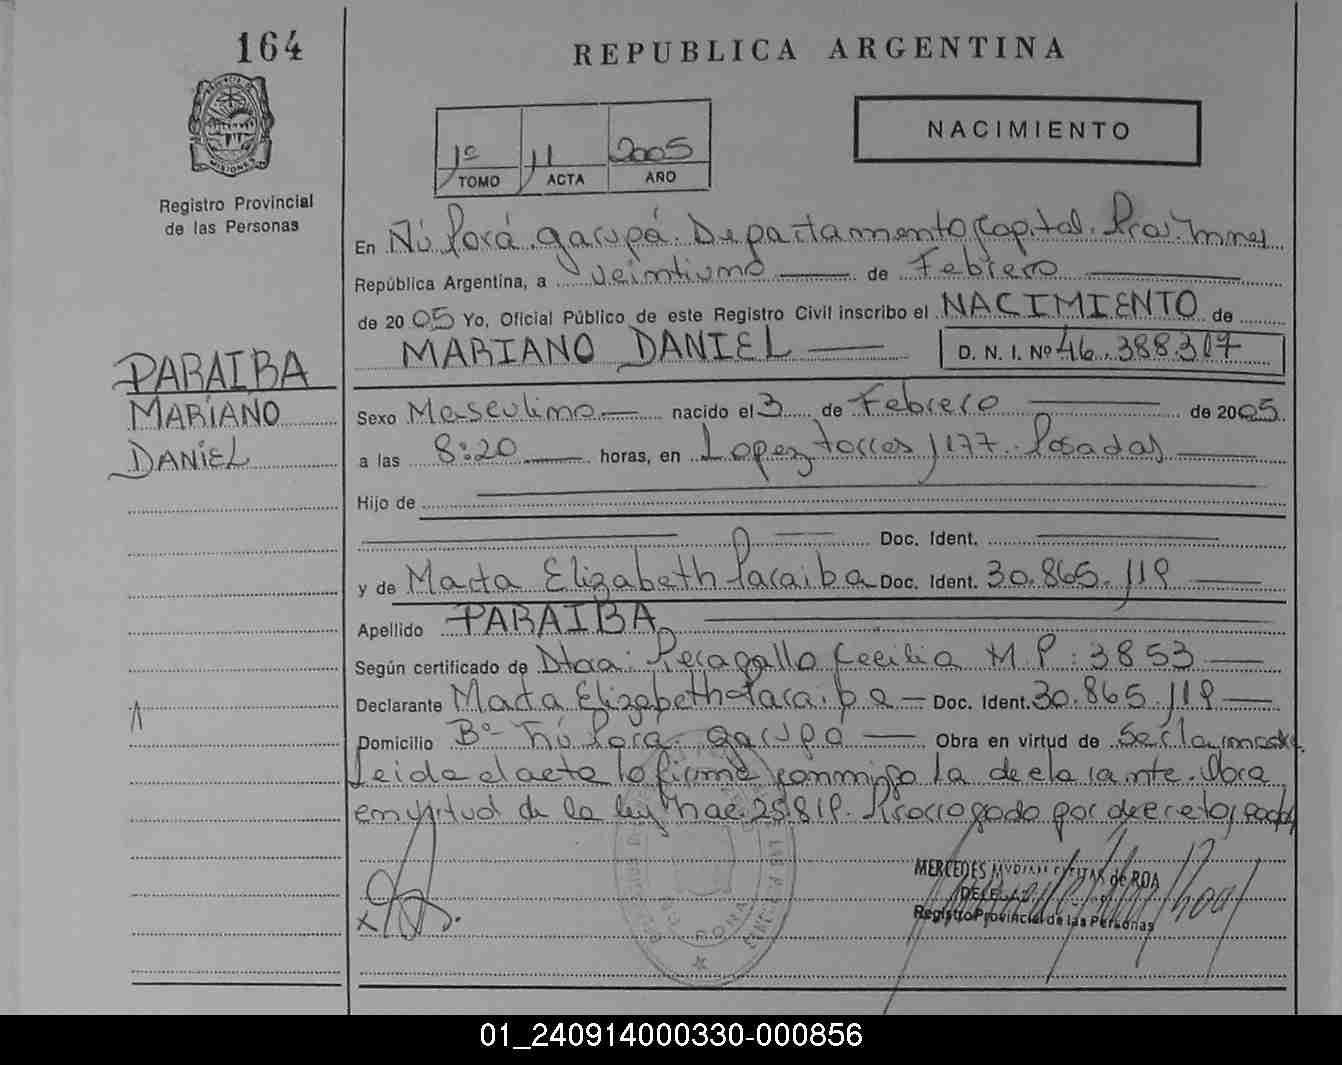 164
REPUBLICA ARGENTINA
NACIMIENTO
1º 11 2005
TOMO ACTA AÑO
Registro Provincial
de las Personas
En Ñú Porá. garupá. Departamento Capital. Prov. Mnes
República Argentina, a veintiuno de Febrero
de 2005 Yo, Oficial Público de este Registro Civil inscribo el NACIMIENTO de
MARIANO DANIEL D. N. I. Nº 46.388.317
PARAIBA
MARIANO
DANIEL
Sexo Masculino nacido el 3 de Febrero de 2005
a las 8:20 horas, en Lopez torres 1177. Posadas
Hijo de
Doc. Ident.
y de Marta Elizabeth Paraiba Doc. Ident. 30.865.119
Apellido PARAIBA
Según certificado de Dtra: Recagallo Cecilia M.P: 3853
Declarante Marta Elizabeth Paraiba Doc. Ident. 30.865.119
Domicilio Bº Ñú Porá. garupá Obra en virtud de
Leida el acta lo firma conmigo la declarante. Obra
en virtud de la ley nac. 25.819. Prorrogado por decreto
MERCEDES de ROA
Registro Provincial de las Personas
01_240914000330-000856